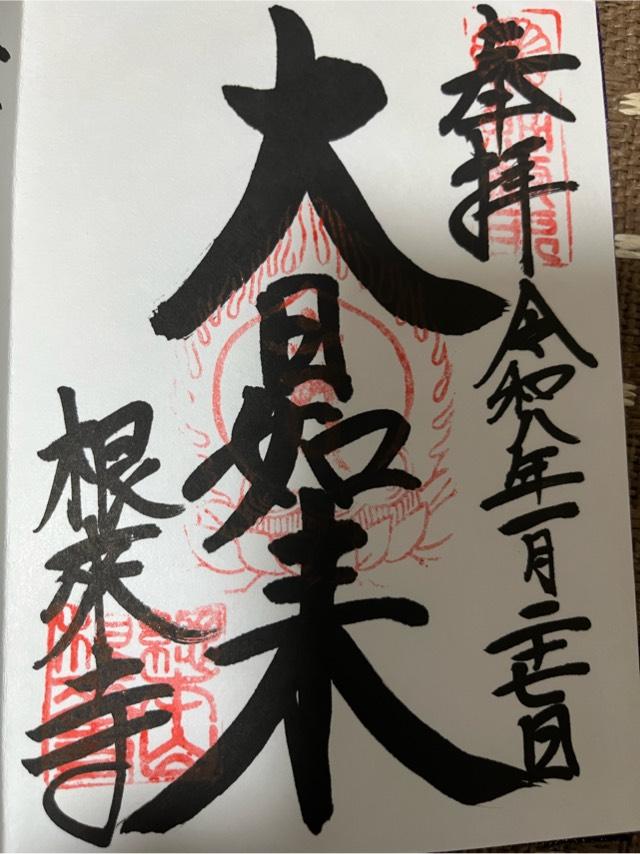 奉拝
令和八年一月二十七日
大日如来
根来寺